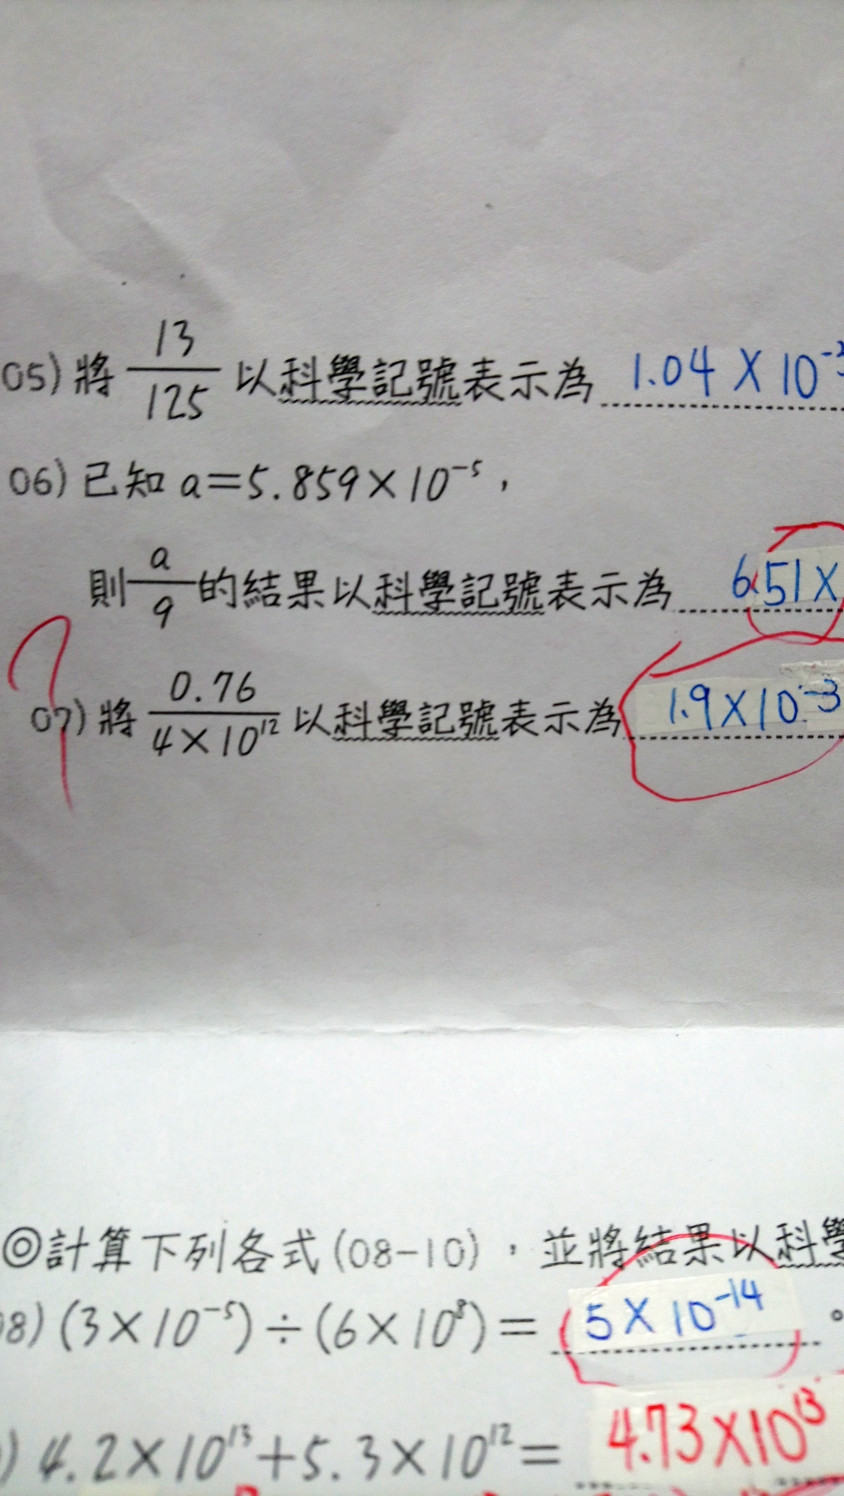 05) 將 13/125 以科學記號表示為 1.04 × 10⁻
06) 已知 a=5.859×10⁻⁵，
則 a/9 的結果以科學記號表示為 6.51×
07) 將 0.76/4×10¹² 以科學記號表示為 1.9×10⁻³
◎計算下列各式(08-10)，並將結果以科學
8) (3×10⁻⁵)÷(6×10⁸)= 5×10⁻¹⁴ 。
) 4.2×10¹³+5.3×10¹²= 4.73×10¹³